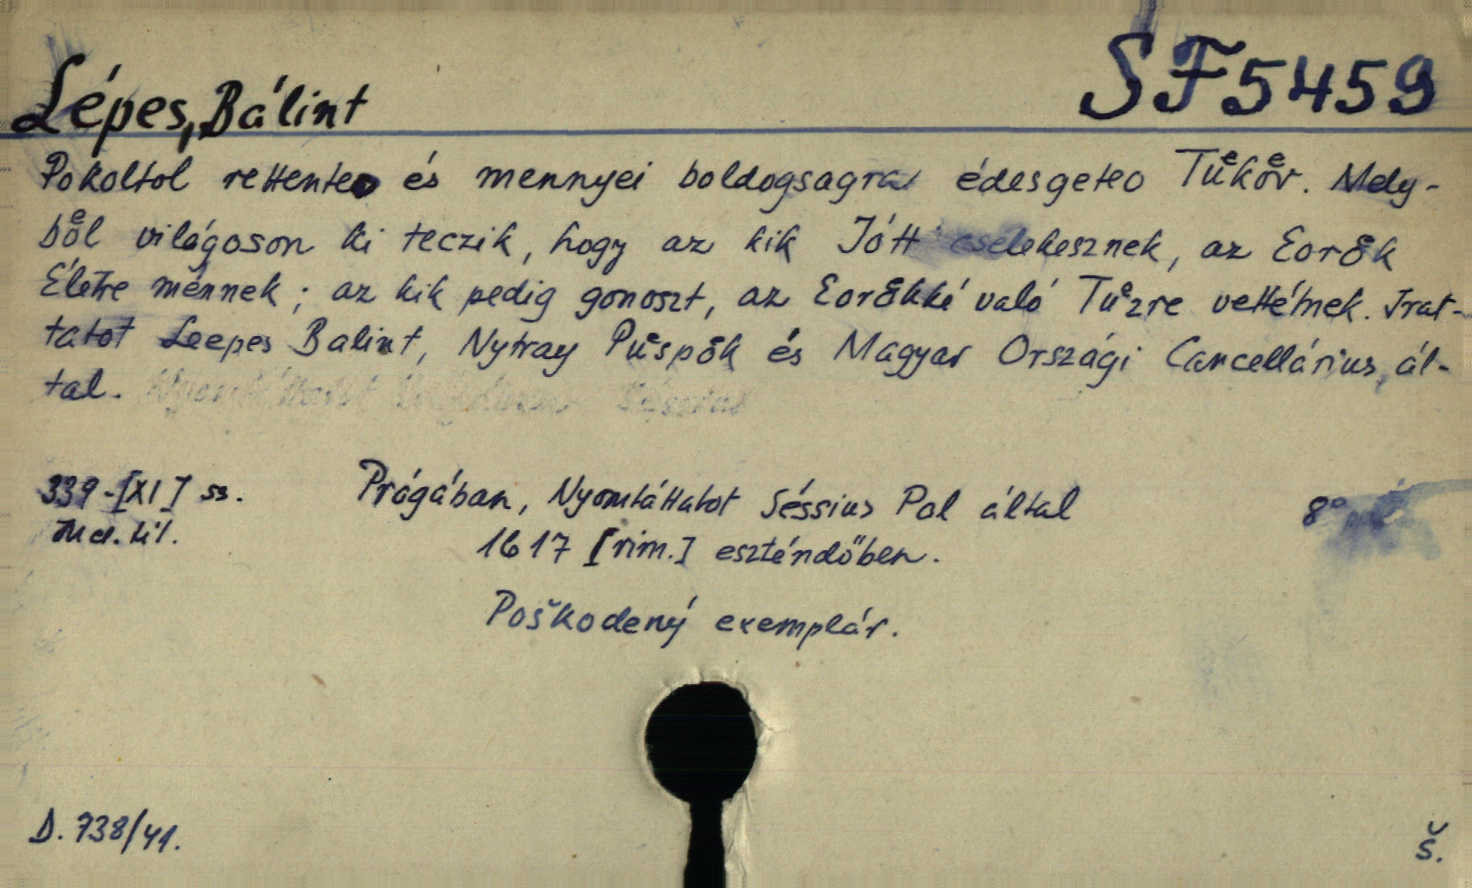 Lépes, Bálint
SF5459
Pokoltol rettenteo és mennyei boldogsagra édesgeteo Tuͤkoͤr. Mely-
boͤl világoson ki teczik, hogy az kik Jótt cselekesznek, az Eoroͤk
Életre ménnek; az kik pedig gonoszt, az Eoroͤkké való Tuͤzre vettétnek. Irat-
tatot Leepes Balint, Nytray Puͤspoͤk és Magyar Országi Cancellárius ál-
tal.
339-[XI] ss.
Prágában, Nyomtáttatot Séssius Pal által
8°
tit.
1617 [rim.] eszténdőben.
Poškodený exemplár.
D. 738/41.
Š.